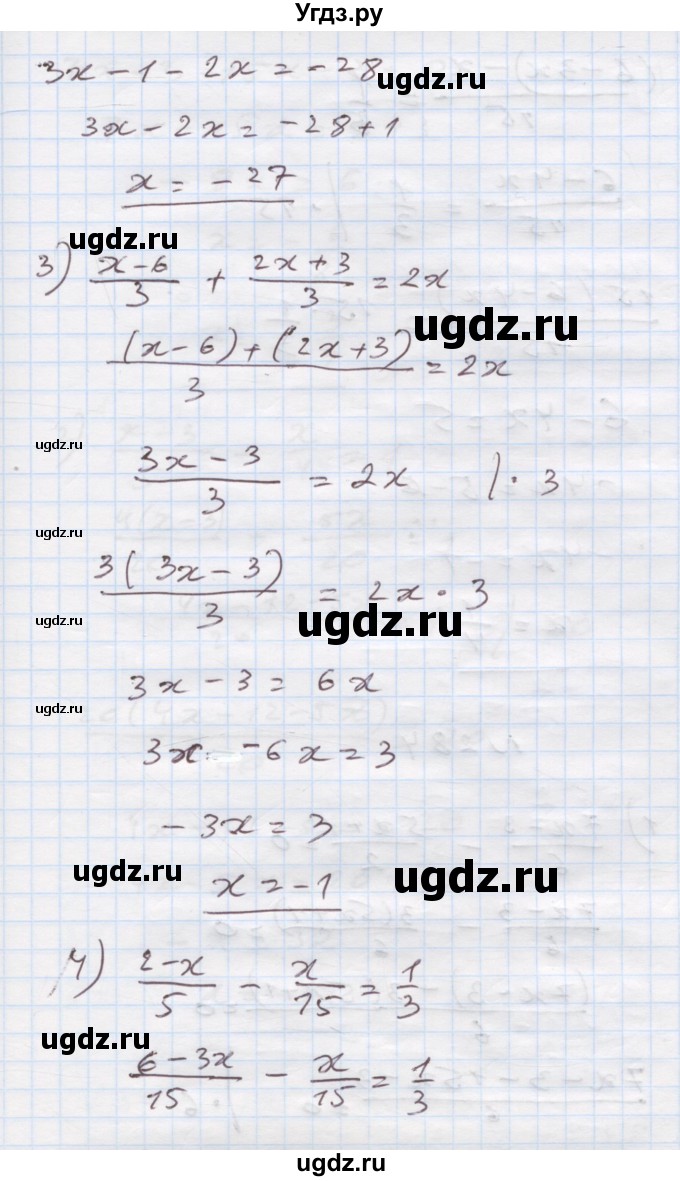 Угдз.ру
3x - 1 - 2x = -28
ugdz.ru
3x - 2x = -28 + 1
x = -27
ugdz.ru
3) (x-6)/3 + (2x+3)/3 = 2x
ugdz.ru
((x-6)+(2x+3))/3 = 2x
ugdz.ru
(3x-3)/3 = 2x | · 3
ugdz.ru
3(3x-3)/3 = 2x · 3
ugdz.ru
ugdz.ru
3x - 3 = 6x
ugdz.ru
3x - 6x = 3
-3x = 3
ugdz.ru
ugdz.ru
x = -1
4) (2-x)/5 - x/15 = 1/3
ugdz.ru
(6-3x)/15 - x/15 = 1/3
ugdz.ru